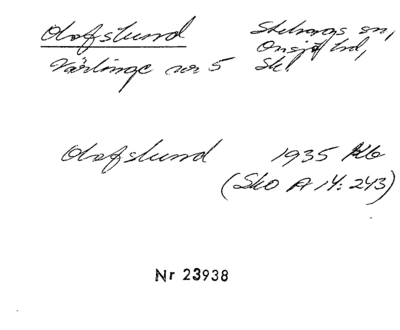 Olofslund Skeh sn,
Onsjö hd,
nr 5 Sk.
Olofslund 1935 Kb
(SkO A 14: 243)
Nr 23938